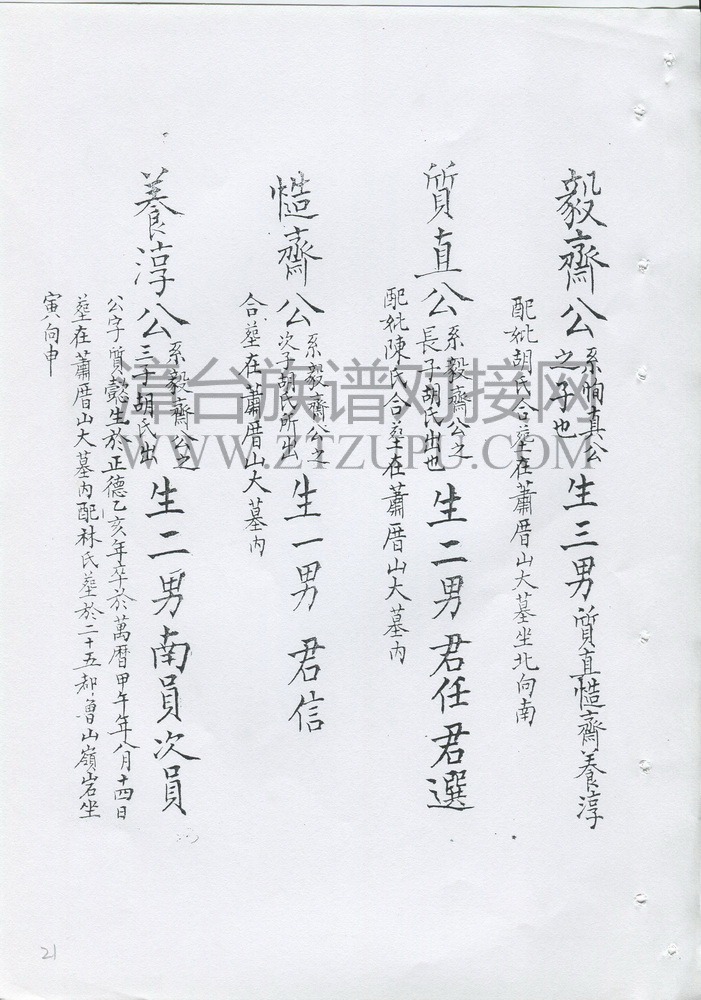 毅齋公系恂真公之子也生三男質直慥齋養淳
配妣胡氏合墓在蕭厝山大墓坐北向南
質直公系毅齋公之長子胡氏出也生二男君任君選
配妣陳氏合墓在蕭厝山大墓内
慥齋公系毅齋公之次子胡氏所出生一男君信
合墓在蕭厝山大墓内
養淳公系毅齋公之三子胡氏出生二男南員次員
公字質懿生於正德乙亥年卒於萬曆甲午年八月十四日
墓在蕭厝山大墓内配林氏墓於二十五都魯山嶺岩坐
寅向申
章台族谱对接网
WWW.ZTZUPU.COM
21